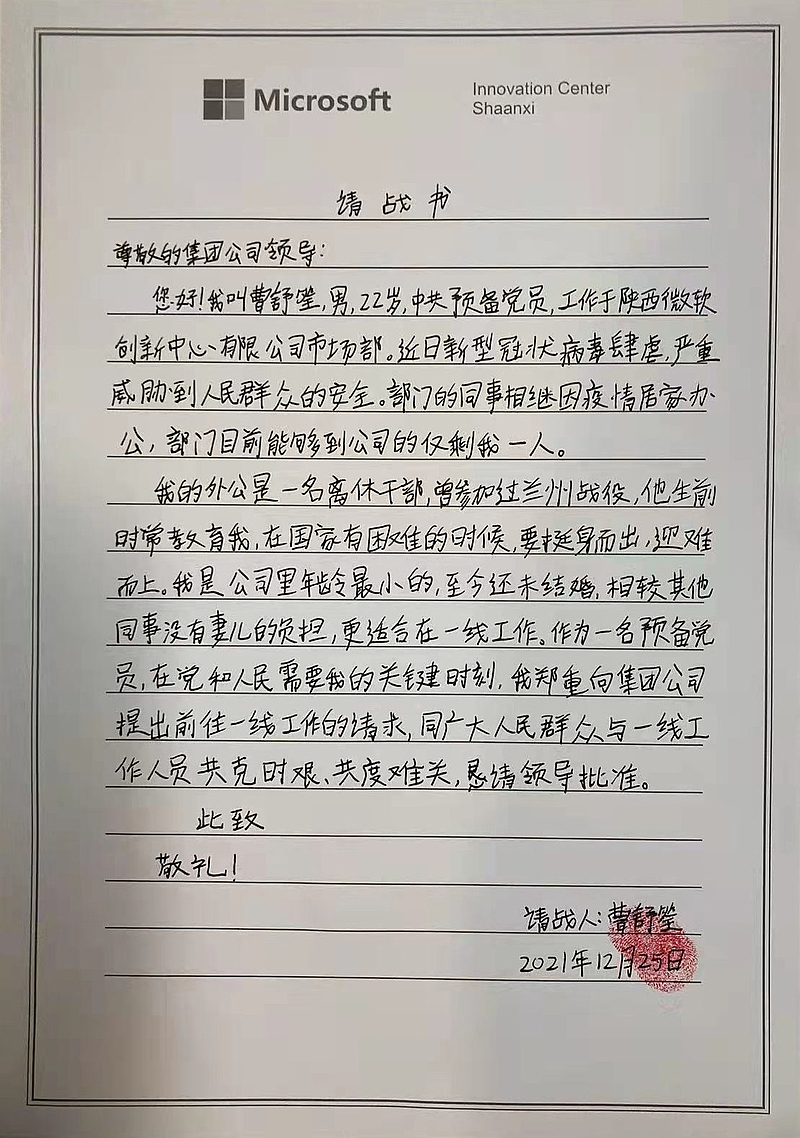 Microsoft
Innovation Center
Shaanxi
请战书
尊敬的集团公司领导：
您好！我叫曹舒笙，男，22岁，中共预备党员，工作于陕西微软
创新中心有限公司市场部。近日新型冠状病毒肆虐，严重
威胁到人民群众的安全。部门的同事相继因疫情居家办
公，部门目前能够到公司的仅剩我一人。
我的外公是一名离休干部，曾参加过兰州战役，他生前
时常教育我，在国家有困难的时候，要挺身而出，迎难
而上。我是公司里年龄最小的，至今还未结婚，相较其他
同事没有妻儿的负担，更适合在一线工作。作为一名预备党
员，在党和人民需要我的关键时刻，我郑重向集团公司
提出前往一线工作的请求，同广大人民群众与一线工
作人员共克时艰、共度难关，恳请领导批准。
此致
敬礼！
请战人：曹舒笙
2021年12月25日